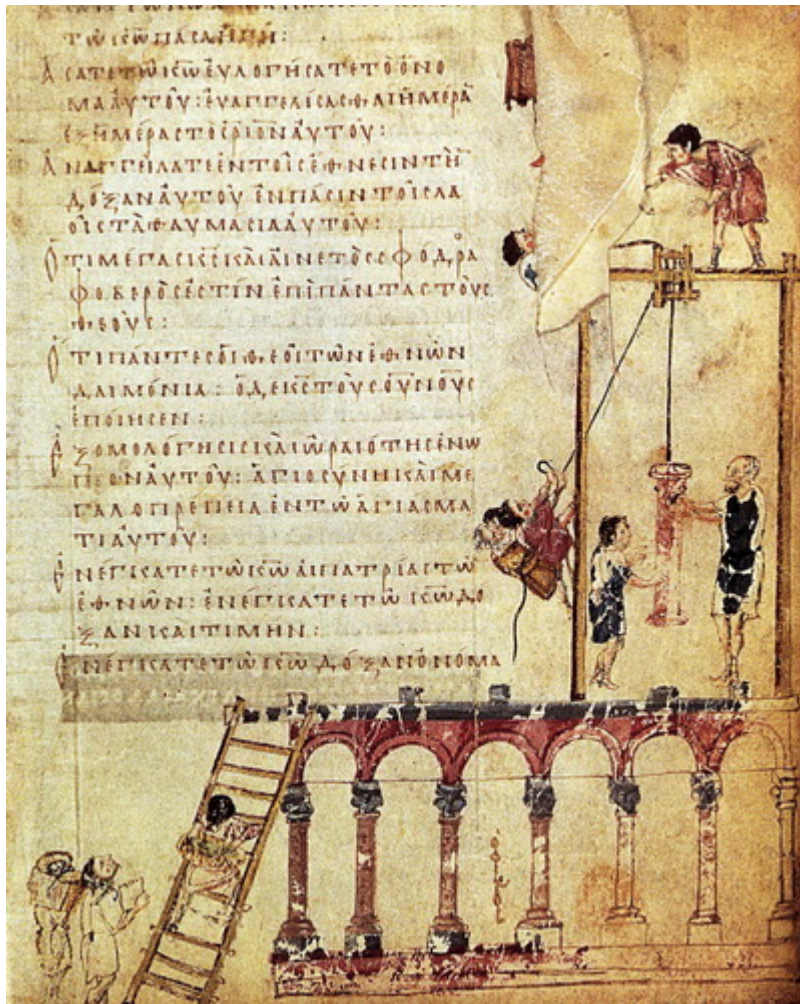 ΤῼΚ̅Ω̅ΠΑϹΑΗΓΗ:
ΑϹΑΤΕΤΩΚ̅Ω̅ΕΥΛΟΓΗϹΑΤΕΤΟΟΝΟ
ΜΑΑΥΤΟΥ: ΕΥΑΓΓΕΛΙϹΑϹΘΑΙΗΜΕΡΑ
ΕΞΗΜΕΡΑϹΤΟϹΡΙΟΝΑΥΤΟΥ:
ΑΝΑΓΓΕΙΛΑΤΕΕΝΤΟΙϹΕΘΝΕϹΙΝΤΗ
ΔΟΞΑΝΑΥΤΟΥ ΕΝΠΑϹΙΝΤΟΙϹΛΑ
ΟΙϹΤΑΘΑΥΜΑϹΙΑΑΥΤΟΥ:
ΟΤΙΜΕΓΑϹΚ̅Ϲ̅ΚΑΙΑΙΝΕΤΟϹϹΦΟΔΡΑ
ΦΟΒΕΡΟϹΕϹΤΙΝΕΠΙΠΑΝΤΑϹΤΟΥϹ
ΘΕΟΥϹ:
ΟΤΙΠΑΝΤΕϹΟΙΘΕΟΙΤΩΝΕΘΝΩΝ
ΔΑΙΜΟΝΙΑ: ΟΔΕΚ̅Ϲ̅ΤΟΥϹΟΥΝΟΥϹ
ΕΠΟΙΗϹΕΝ:
ΕΞΟΜΟΛΟΓΗϹΙϹΚΑΙΩΡΑΙΟΤΗϹΕΝΩ
ΠΙΟΝΑΥΤΟΥ: ΑΓΙΟϹΥΝΗΚΑΙΜΕ
ΓΑΛΟΠΡΕΠΕΙΑΕΝΤΩΑΓΙΑϹΜΑ
ΤΙΑΥΤΟΥ:
ΕΝΕΓΚΑΤΕΤΩΚ̅Ω̅ΑΙΠΑΤΡΙΑΙΤΩ
ΕΘΝΩΝ: ΕΝΕΓΚΑΤΕΤΩΚ̅Ω̅ΔΟ
ΞΑΝΚΑΙΤΙΜΗΝ:
ΕΝΕΓΚΑΤΕΤΩΚ̅Ω̅ΔΟΞΑΝΟΝΟΜΑ